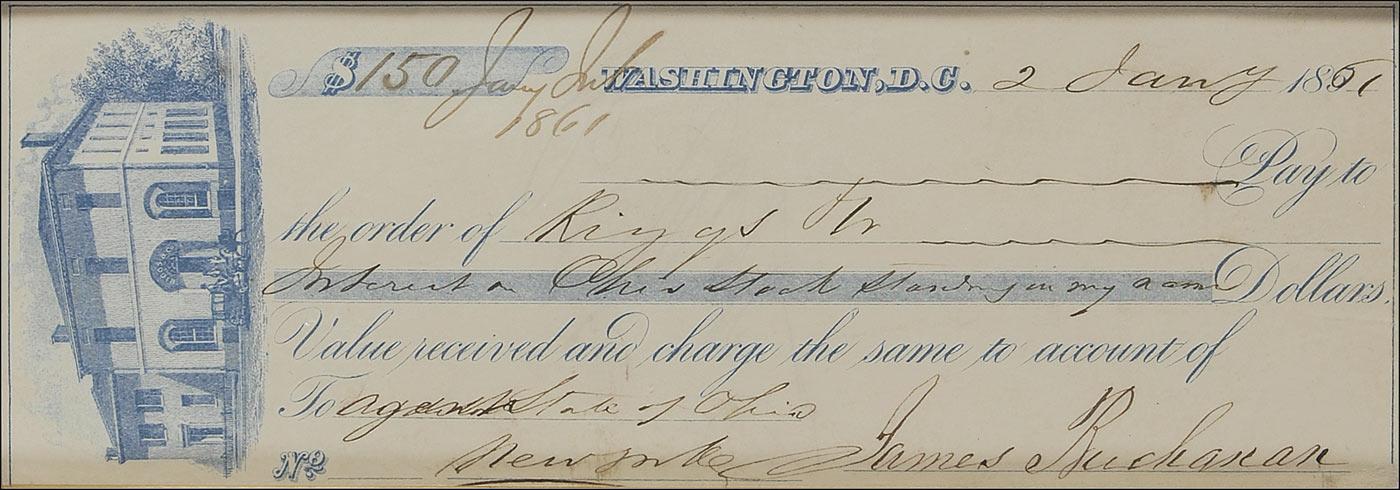 $150 Jany Int. WASHINGTON, D.C. 2 Jany 1861
1861
Pay to
the order of Riggs &Co
Interest on Ohio Stock standing in my name Dollars,
Value received and charge the same to account of
To Agent State of Ohio
No New York James Buchanan